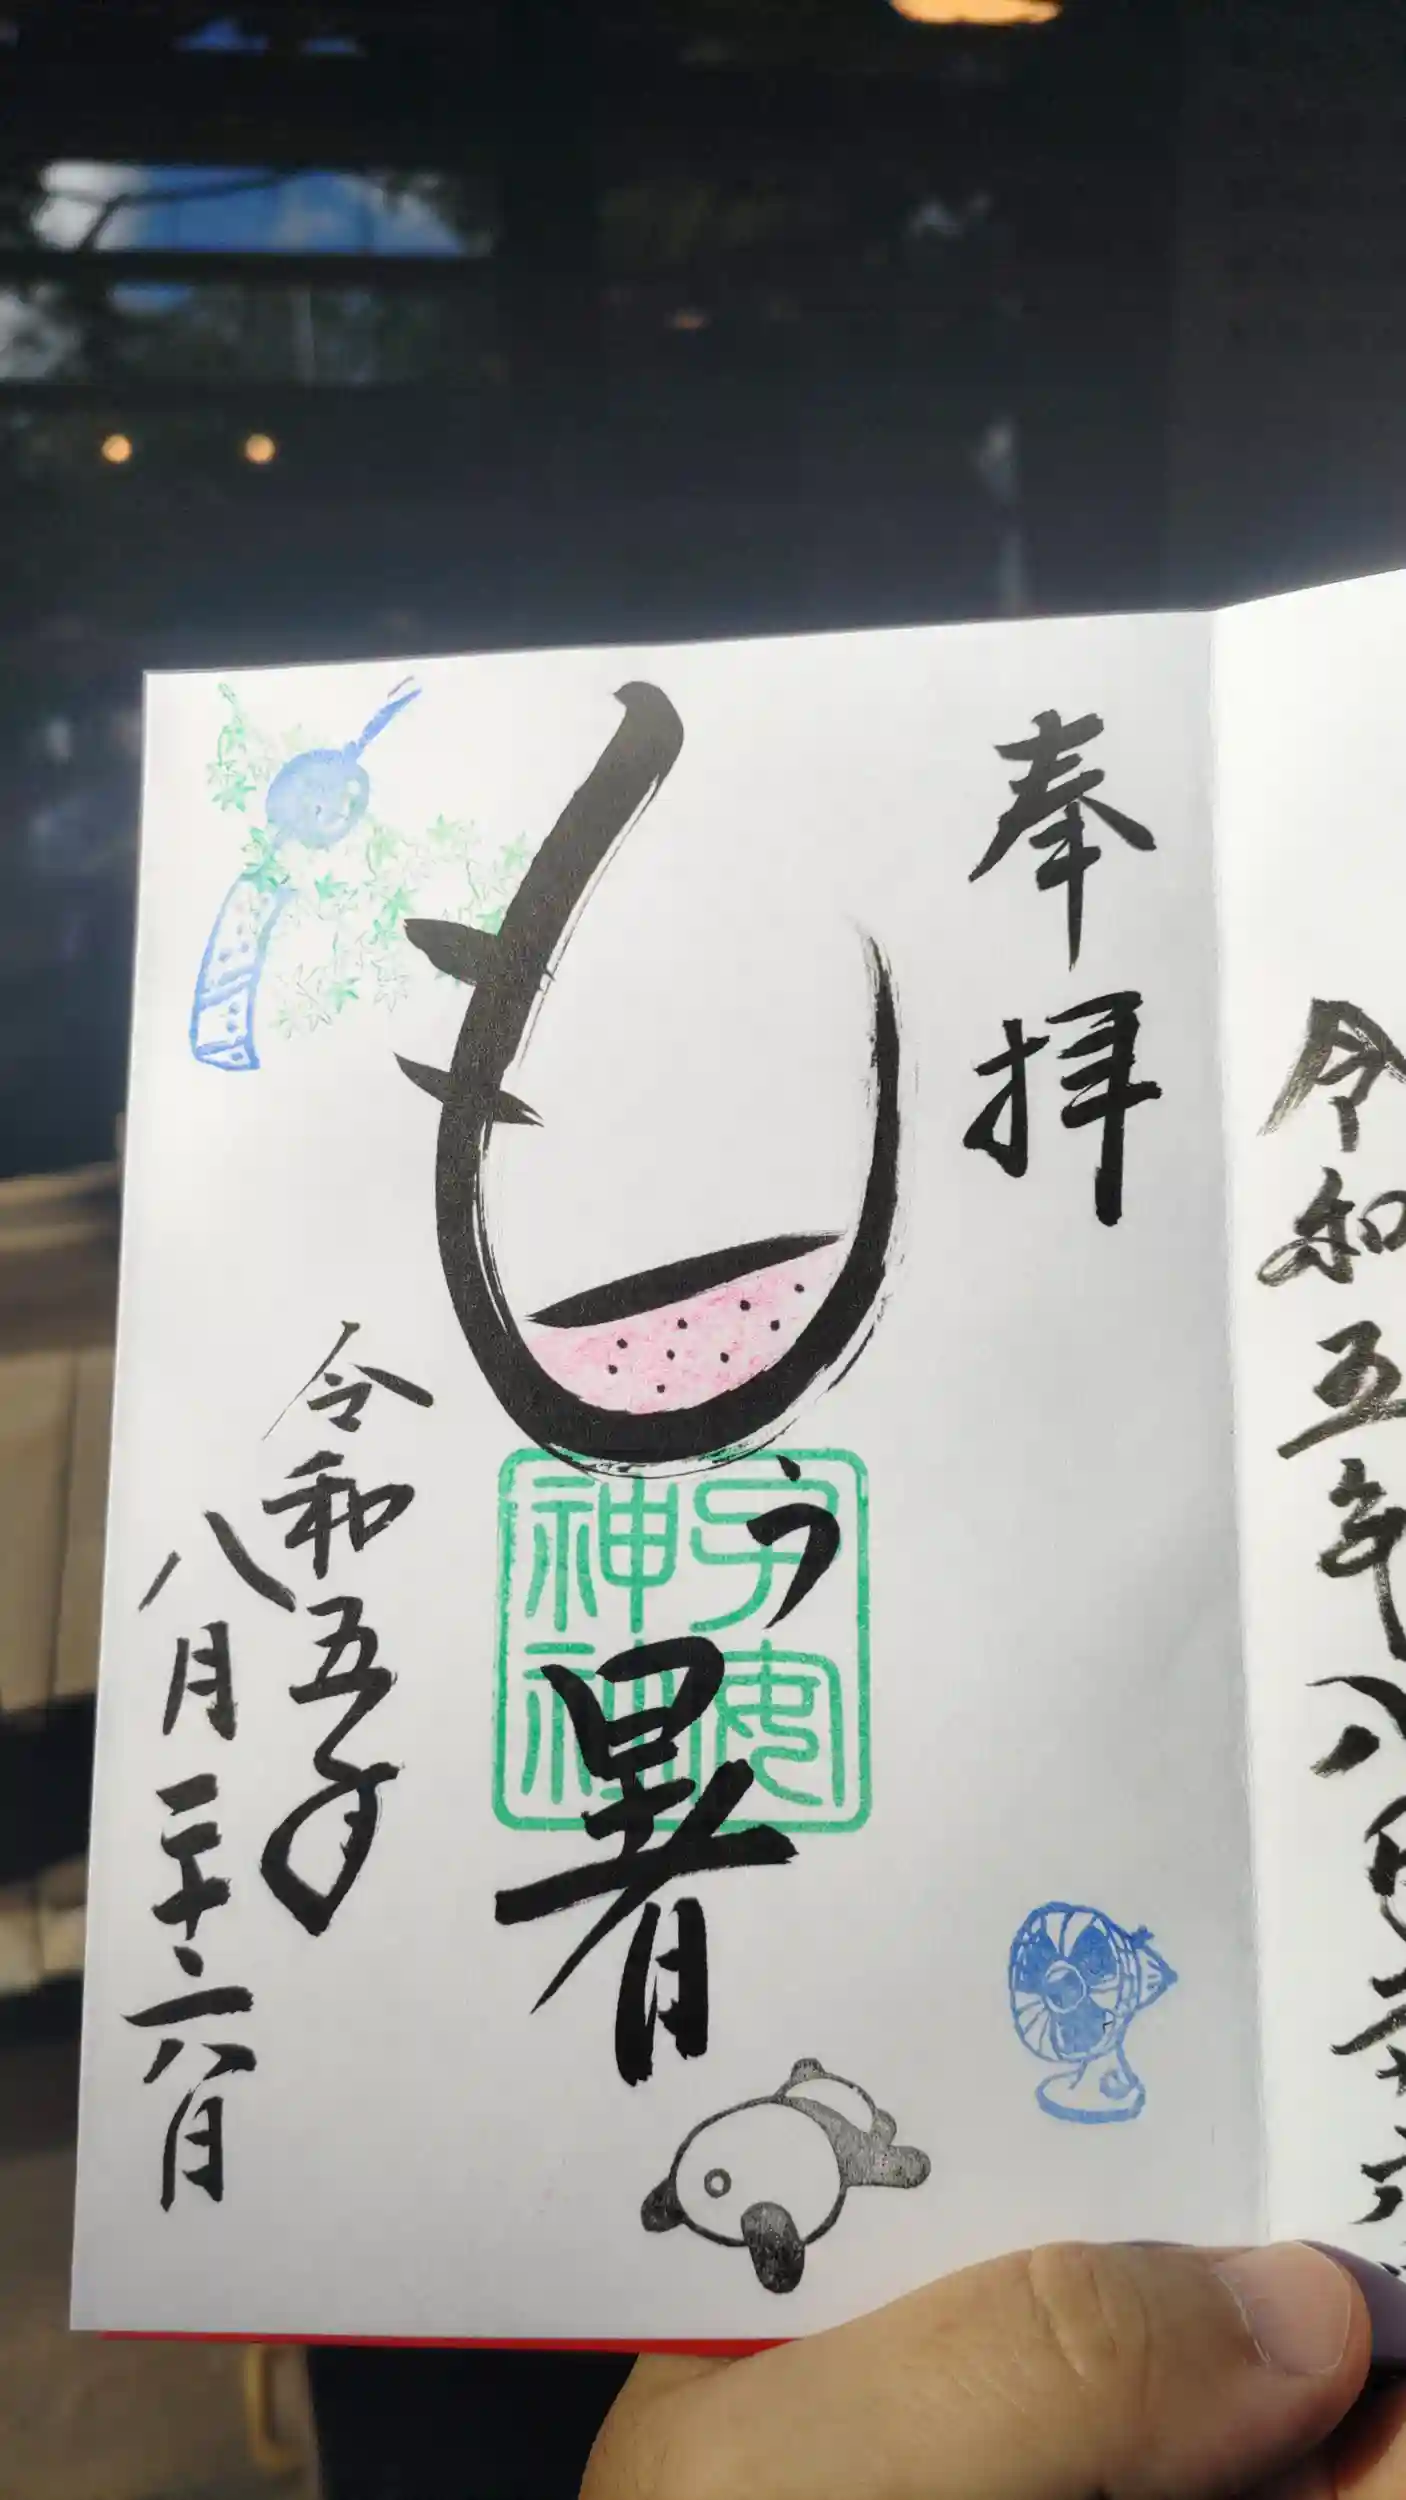 令和五年八月
奉拝
もう暑
子安
神社
令和五年
八月二十六日